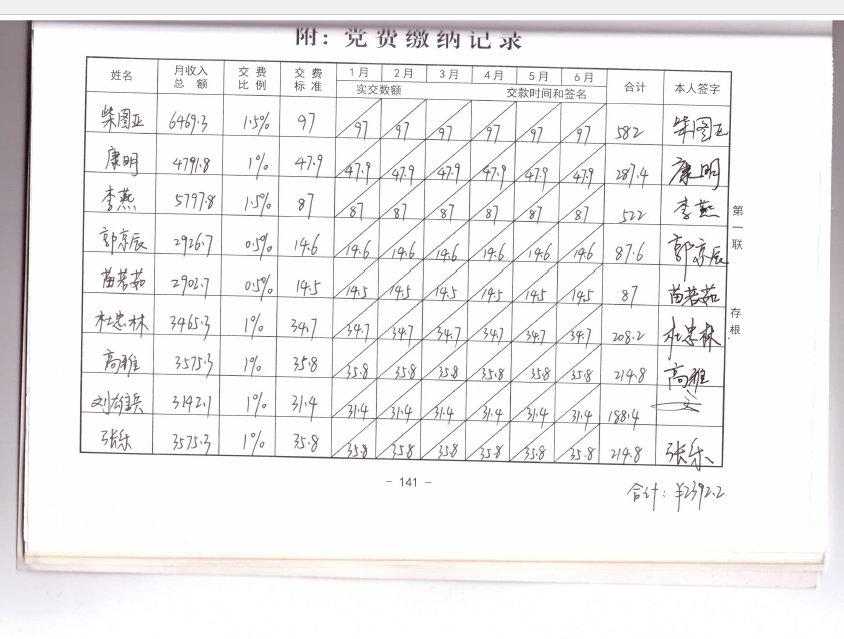 附：党费缴纳记录
姓名 月收入总额 交费比例 交费标准 1月 2月 3月 4月 5月 6月 合计 本人签字
实交数额 交款时间和签名
柴图亚 6469.3 1.5% 97 97 97 97 97 97 97 582 柴图亚
康明 4791.8 1% 47.9 47.9 47.9 47.9 47.9 47.9 47.9 287.4 康明
李燕 5797.8 1.5% 87 87 87 87 87 87 87 522 李燕
郭京辰 2926.7 0.5% 14.6 14.6 14.6 14.6 14.6 14.6 14.6 87.6 郭京辰
苗若茹 2902.7 0.5% 14.5 14.5 14.5 14.5 14.5 14.5 14.5 87 苗若茹
杜忠林 3465.3 1% 34.7 34.7 34.7 34.7 34.7 34.7 34.7 208.2 杜忠林
高雅 3575.3 1% 35.8 35.8 35.8 35.8 35.8 35.8 35.8 214.8 高雅
刘雄兵 3142.1 1% 31.4 31.4 31.4 31.4 31.4 31.4 31.4 188.4
张乐 3575.3 1% 35.8 35.8 35.8 35.8 35.8 35.8 35.8 214.8 张乐
第一联 存根
- 141 -
合计：¥2392.2